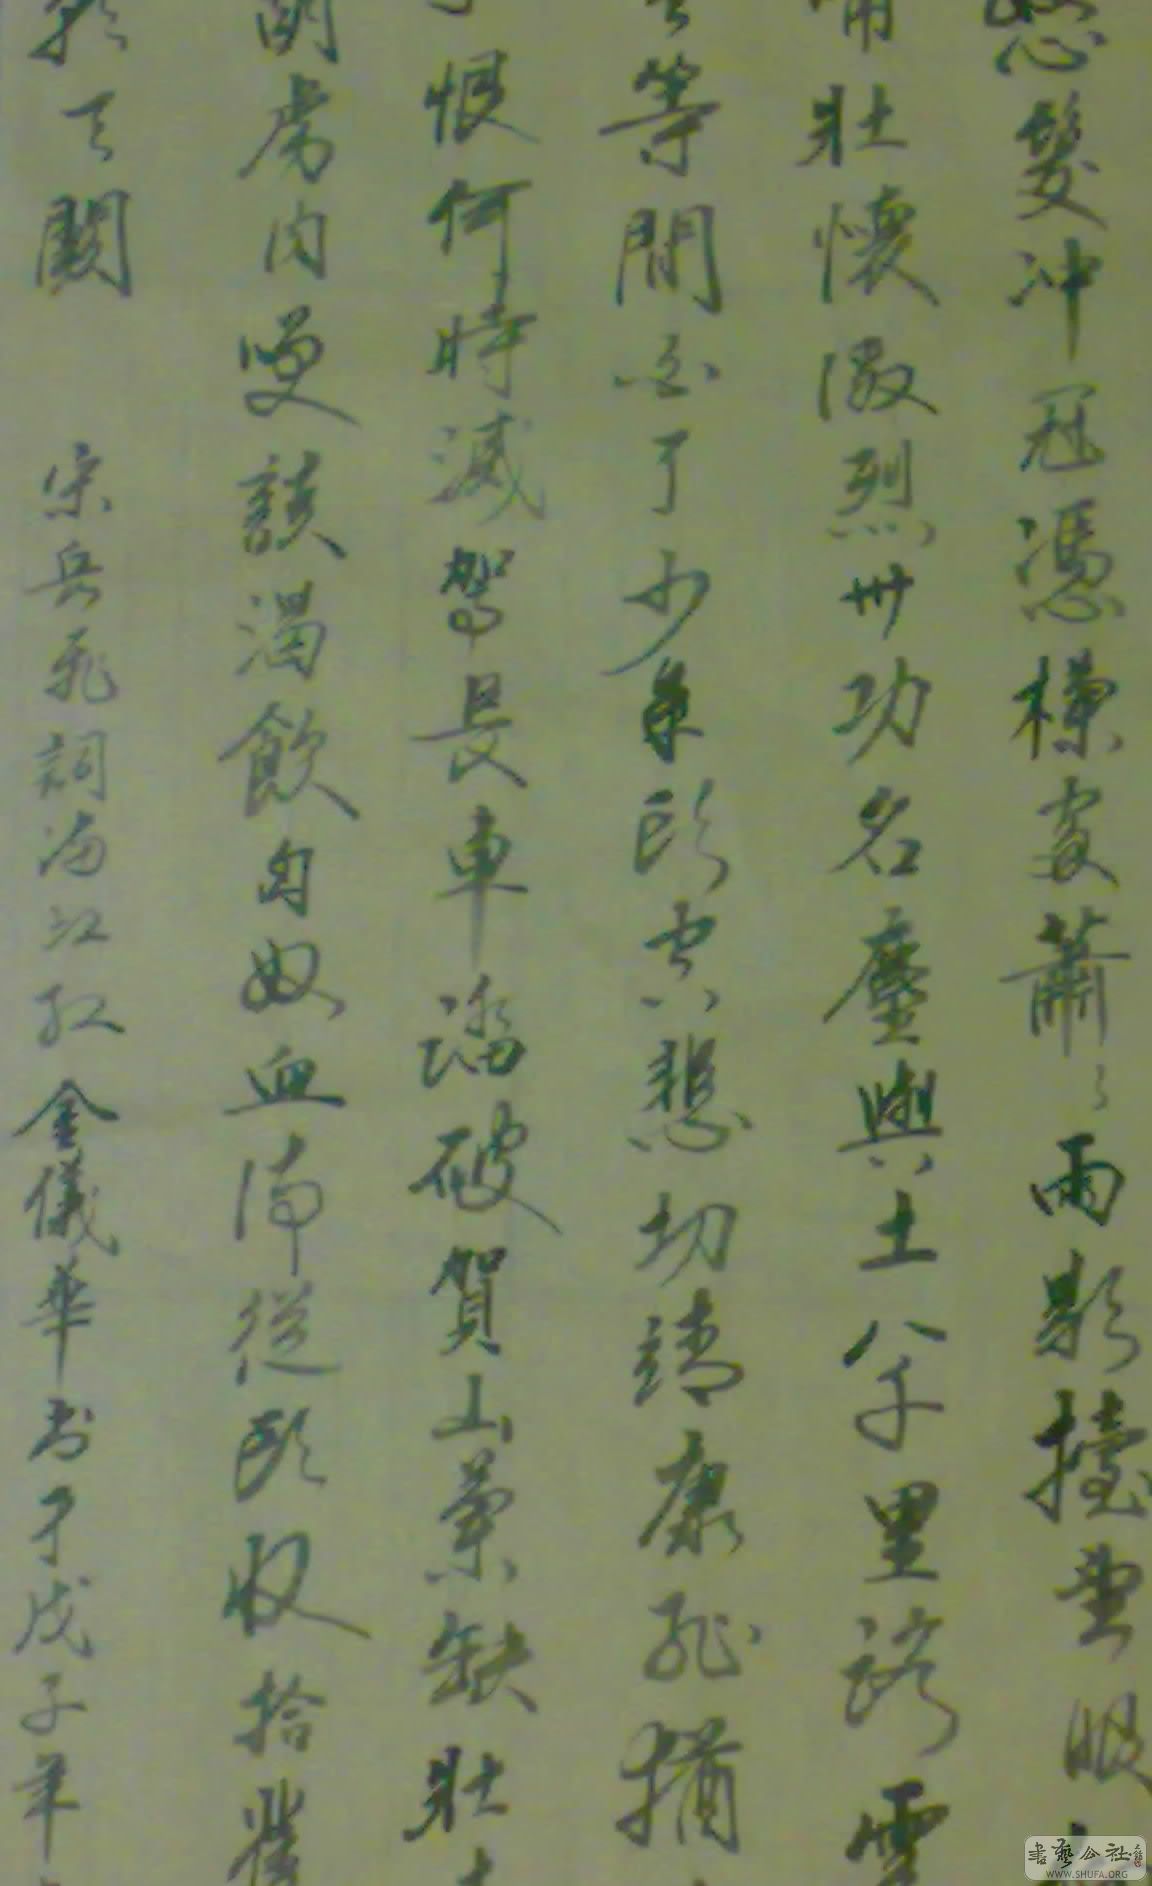 怒髮冲冠憑欄處蕭〻雨歇擡望眼
嘯壯懷激烈卅功名塵與土八千里路雲
等閒白了少年頭空悲切靖康恥猶
恨何時滅駕長車踏破賀蘭山缺壯士
胡虜肉笑談渴飲匈奴血待從頭收拾舊
朝天闕
宋岳飛詞滿江紅金儀華书于戊子年
書藝公社
WWW.SHUFA.ORG